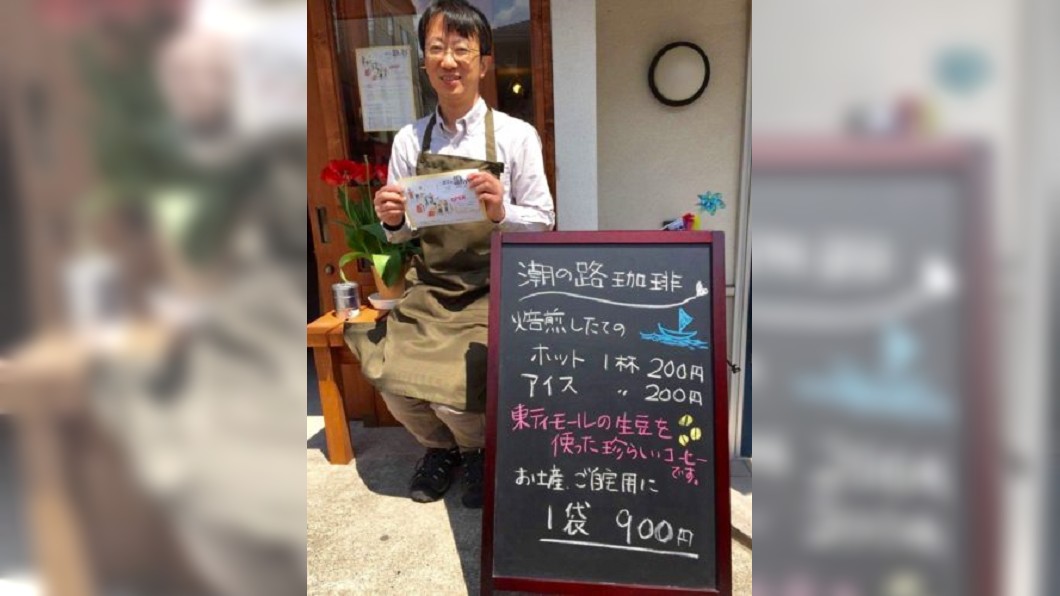 潮の路珈琲
焙煎したての
ホット 1杯 200円
アイス 〃 200円
東ティモールの生豆を
使った珍らしいコーヒー
です。
お土産、ご自宅用に
1袋 900円